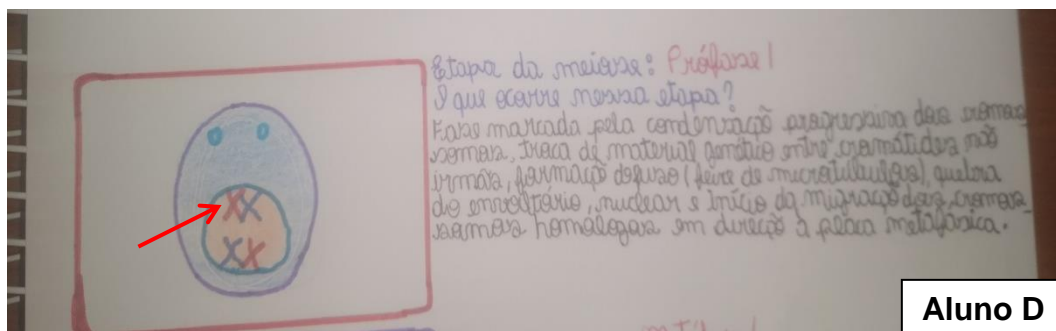 Etapa da meiose: Prófase I
O que ocorre nessa etapa?
Fase marcada pela condensação progressiva dos cromos
somos, troca de material genético entre cromátides não
irmãs, formação do fuso (feixe de microtúbulos), quebra
do envoltório, nuclear e início da migração dos cromos_
somos homólogos em direção à placa metafásica.
Aluno D